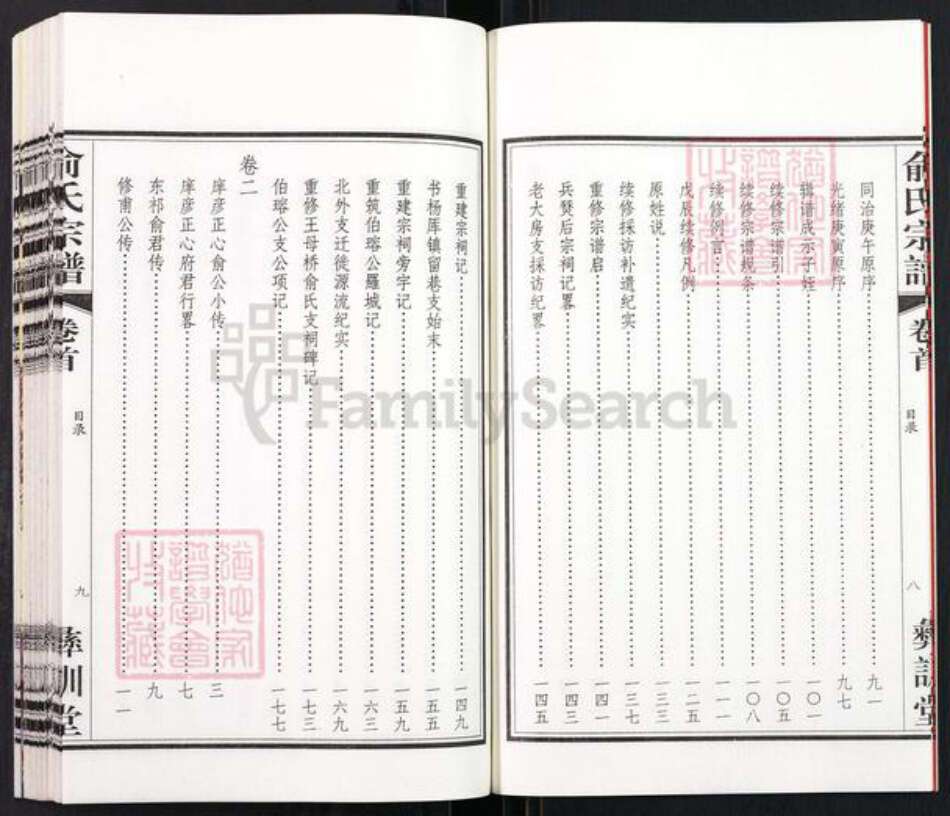 同治庚午原序 九一
光绪庚寅原序 九七
辑谱成示子姪 一〇一
续修宗谱引 一〇五
续修宗谱规条 一〇八
续修例言 一一一
戊辰续修凡例 一二五
原姓说 一三三
续修採访补遗纪实 一三七
重修宗谱启 一四一
兵燹后宗祠记畧 一四三
老大房支採访纪畧 一四五
俞氏宗谱
卷首
目录
八
彝训堂
重建宗祠记 一四九
书杨厍镇留巷支始末 一五五
重建宗祠旁宇记 一五九
重筑伯瑢公羅城记 一六三
北外支迁徙源流纪实 一六九
重修王母桥俞氏支祠碑记 一七三
伯瑢公支公项记 一七七
卷二
庠彦正心俞公小传 三
庠彦正心府君行畧 七
东祁俞君传 九
修甫公传 一一
俞氏宗谱
卷首
目录
九
彝训堂
FamilySearch